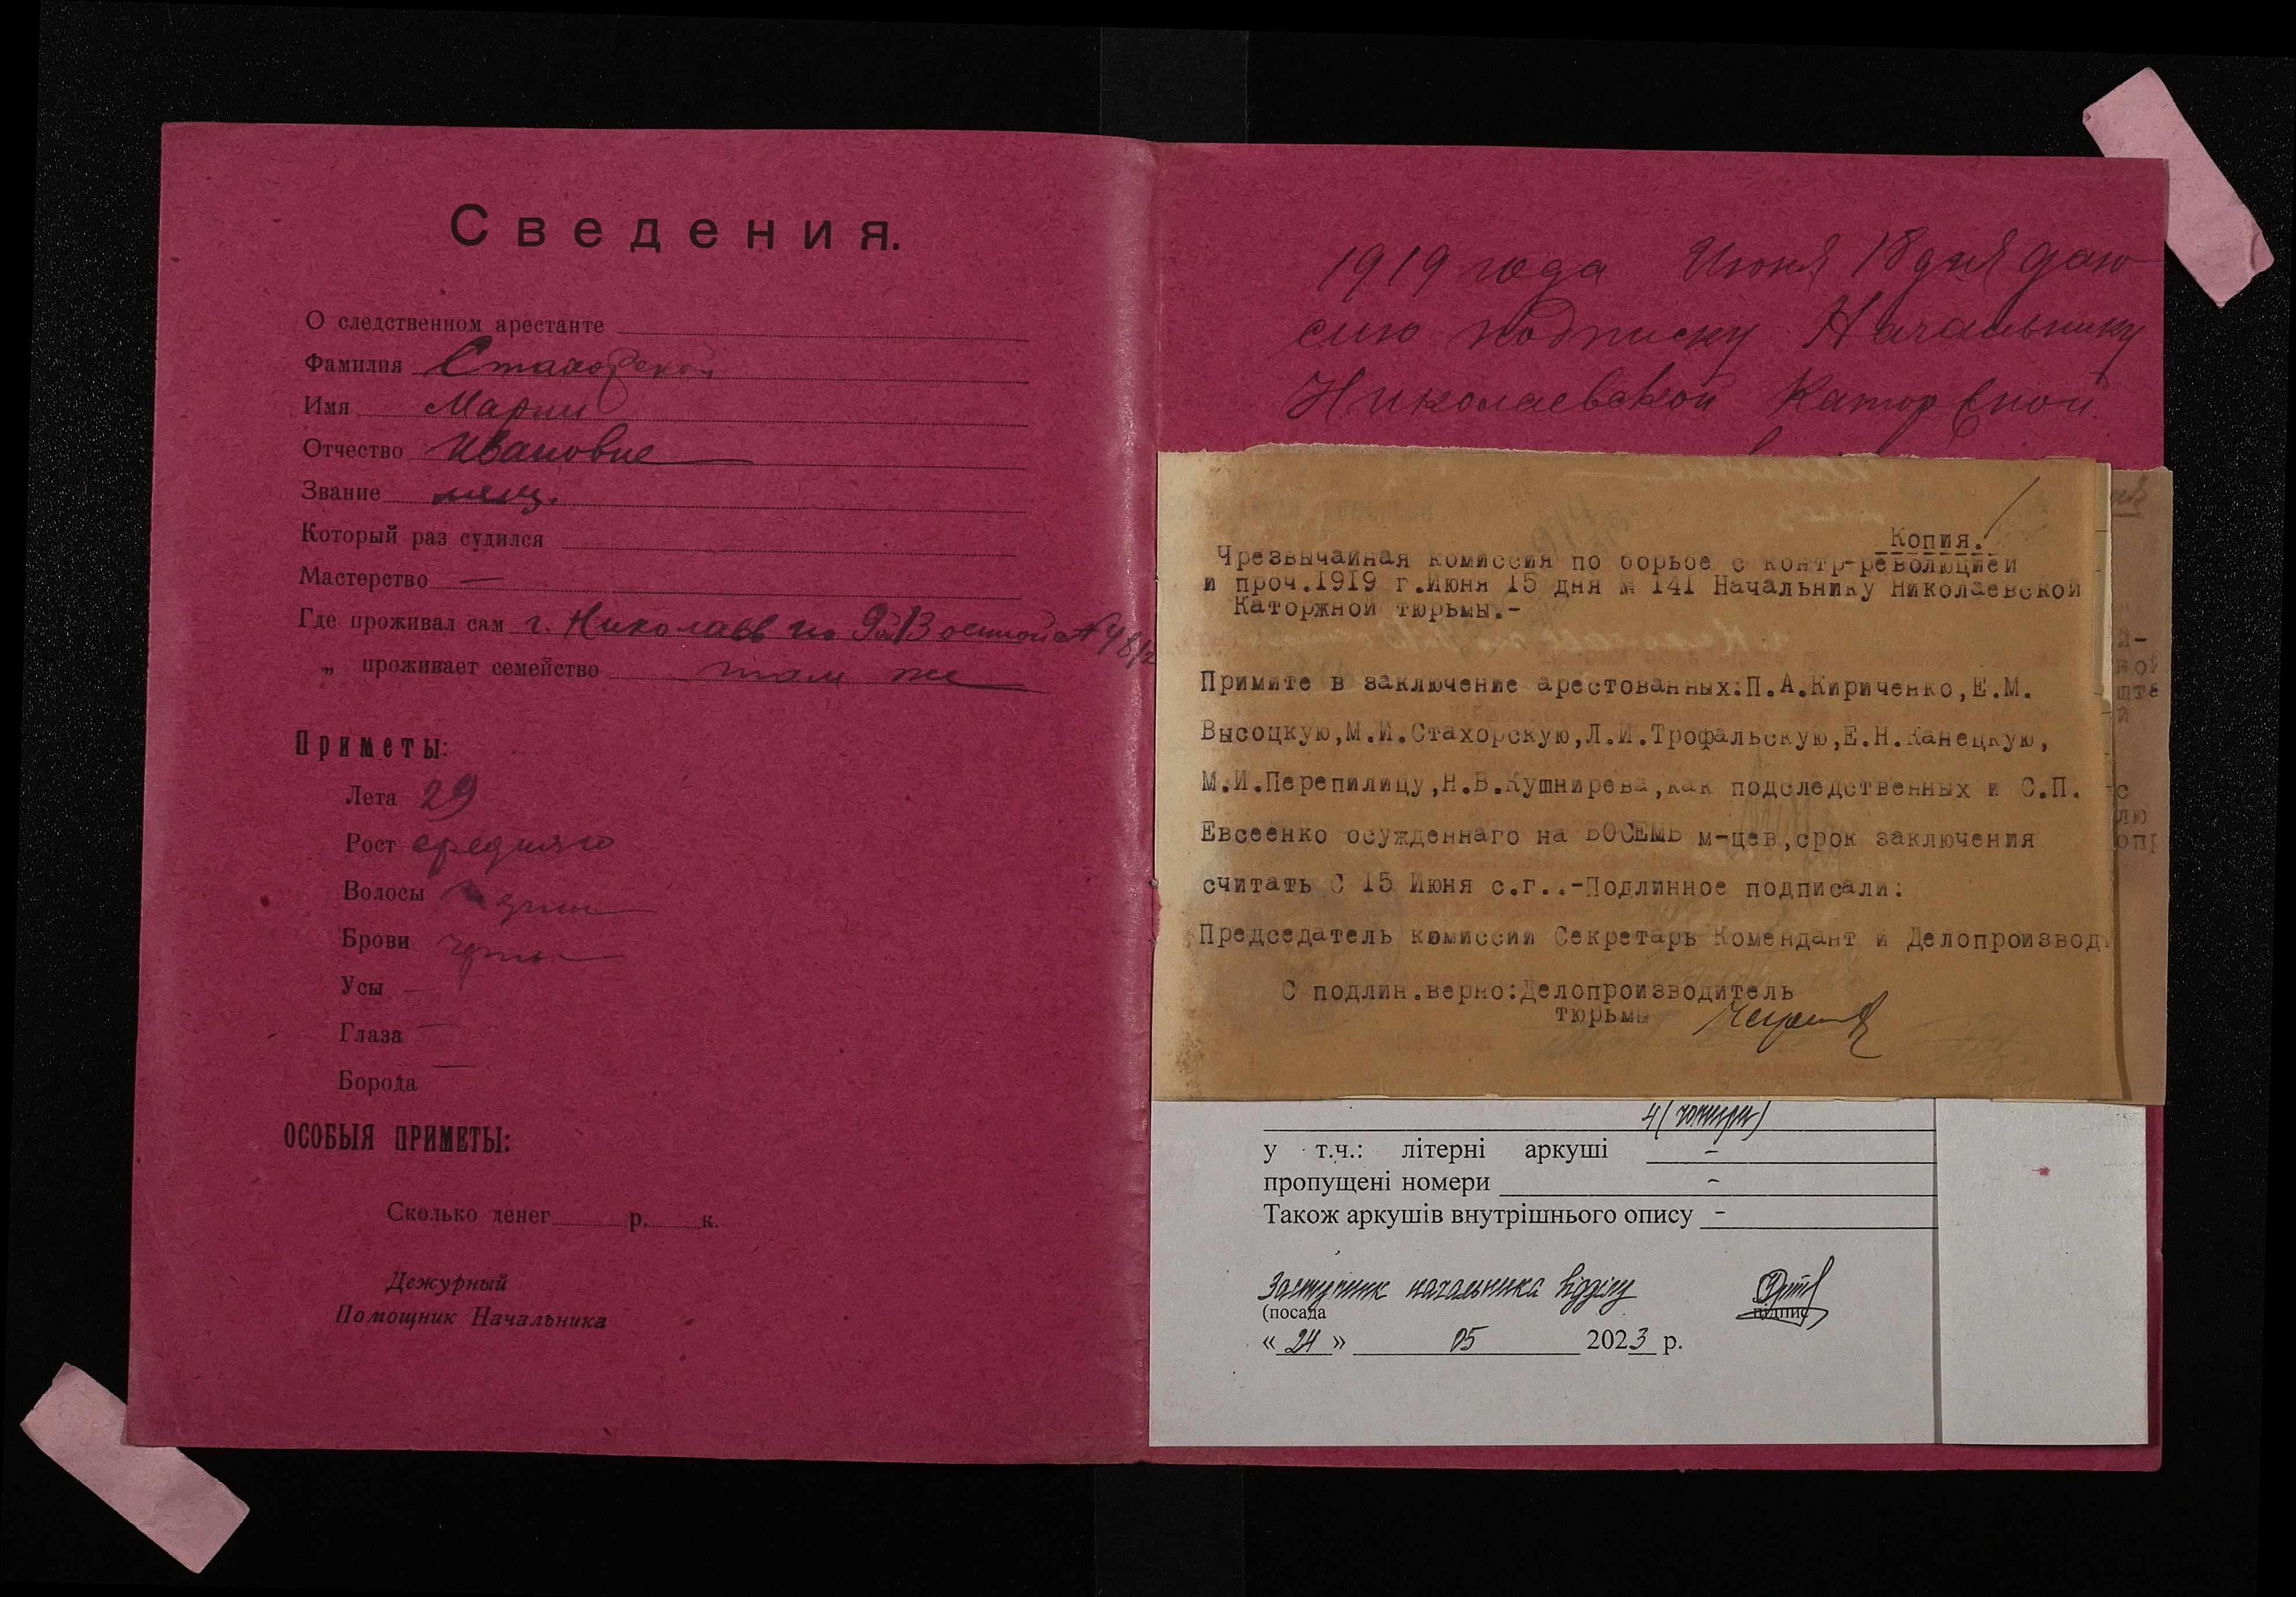 Сведения.
О следственном арестанте
Фамилия Стахорской
Имя Марии
Отчество Ивановне
Звание мещ.
Который раз судился
Мастерство —
Где проживал сам г. Николаев по 9й Военной №
„ проживает семейство там же
Приметы:
Лета 29
Рост средняго
Волосы
Брови черн
Усы —
Глаза —
Борода —
ОСОБЫЯ ПРИМЕТЫ:
Сколько денег р. к.
Дежурный
Помощник Начальника
1919 года Июня 18 дня даю
сию подписку Начальнику
Николаевской Каторжной
Копия.
Чрезвычайная комиссия по борьбе с контр-революцией
и проч.1919 г.Июня 15 дня № 141 Начальнику Николаевской
Каторжной тюрьмы.-
Примите в заключение арестованных:П.А.Кириченко,Е.М.
Высоцкую,М.И.Стахорскую,Л.И.Трофальскую,Е.Н.Канецкую,
М.И.Перепилицу,Н.В.Кушнирева,как подследственных и С.П.
Евсеенко осужденнаго на ВОСЕМЬ м-цев,срок заключения
считать С 15 Июня с.г..-Подлинное подписали:
Председатель комиссии Секретарь Комендант и Делопроизвод.
С подлин.верно:Делопроизводитель
тюрьмы
4 (чотири)
у т.ч.: літерні аркуші -
пропущені номери -
Також аркушів внутрішнього опису -
Заступник начальника відділу
(посада підпис
« 24 » 05 2023 р.